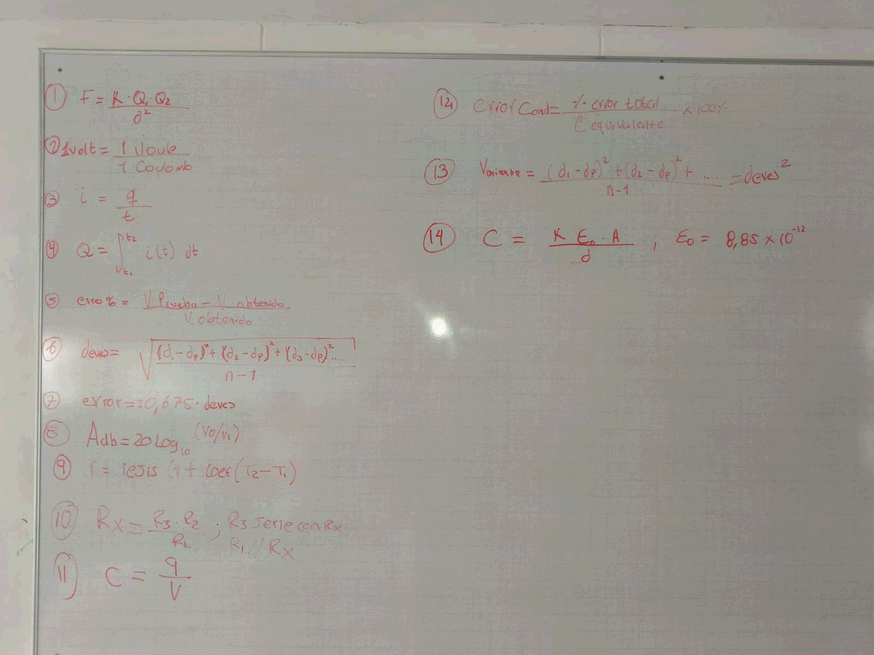 ① F = K·Q₁·Q₂ / d²
② 1volt = 1 Joule / 1 Coulomb
③ i = q / t
④ Q = ∫ₜ₁ᵗ² i(t) dt
⑤ erro% = V Prueba − V obtenido / V obtenido
⑥ deves = √((d₁−dp)² + (d₂−dp)² + (d₃−dp)²... / n−1)
⑦ error = ±0,675·deves
⑧ Adb = 20 Log₁₀ (Vo/Vi)
⑨ r = resis (1 + coef (T₂−T₁)
⑩ Rx = R₃·R₂ / R₁ ; R₃ serie con Rx
R₁ // Rx
⑪ C = q / V
⑫ error Cond = % error total / C equivalente x 100%
⑬ Varianza = (d₁−dp)² + (d₂−dp)² + ... / n−1 = deves²
⑭ C = K ε₀·A / d , ε₀ = 8,85 × 10⁻¹²